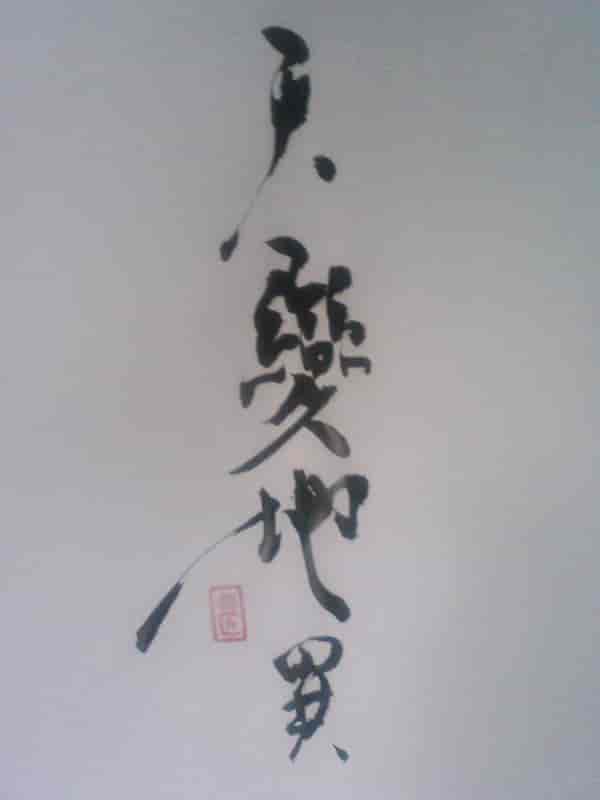 天變地異